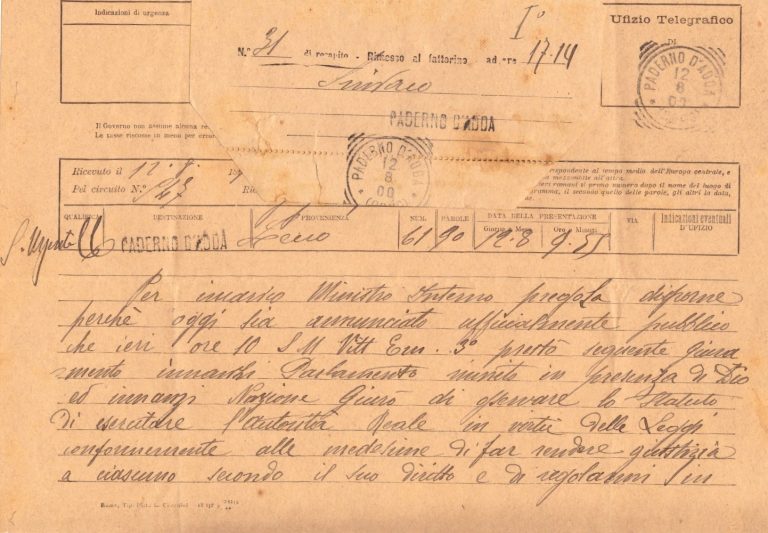 Indicazioni di urgenza
I°
Ufizio Telegrafico
DI
PADERNO D'ADDA
12
8
00
N.° 31 di recapito - Rimesso al fattorino ad ore 17.14
Sindaco
PADERNO D'ADDA
Il Governo non assume alcuna
Le tasse riscosse in meno per
PADERNO D'ADDA
12
8
00
(COMO)
Ricevuto il 12. 8.
Pel circuito N.°
Ric
rrispondente al tempo medio dell'Europa centrale, e
a mezzanotte all'altra.
eri romani il primo numero dopo il nome del luogo di
gramma, il secondo quello delle parole, gli altri la data,
QUALIFICA
DESTINAZIONE
PROVENIENZA
NUM.
PAROLE
DATA DELLA PRESENTAZIONE
Giorno e Mese
Ore e Minuti
VIA
Indicazioni eventuali
D'UFIZIO
S. Urgente
PADERNO D'ADDA
Lecco
61
90
12.8
9.55
Per incarico Ministro Interno pregola disporne
perchè oggi sia annunciato ufficialmente pubblico
che ieri ore 10 S M Vitt Em. 3° prestò seguente Giura
mento innanzi Parlamento riunito in presenza di Dio
ed innanzi Nazione Giuro di osservare lo Statuto
Di esercitare l'autorità Reale in virtù delle Leggi
conformemente alle medesime di far rendere giustizia
a ciascuno secondo il suo diritto e di regolarmi in
Roma, Tip.